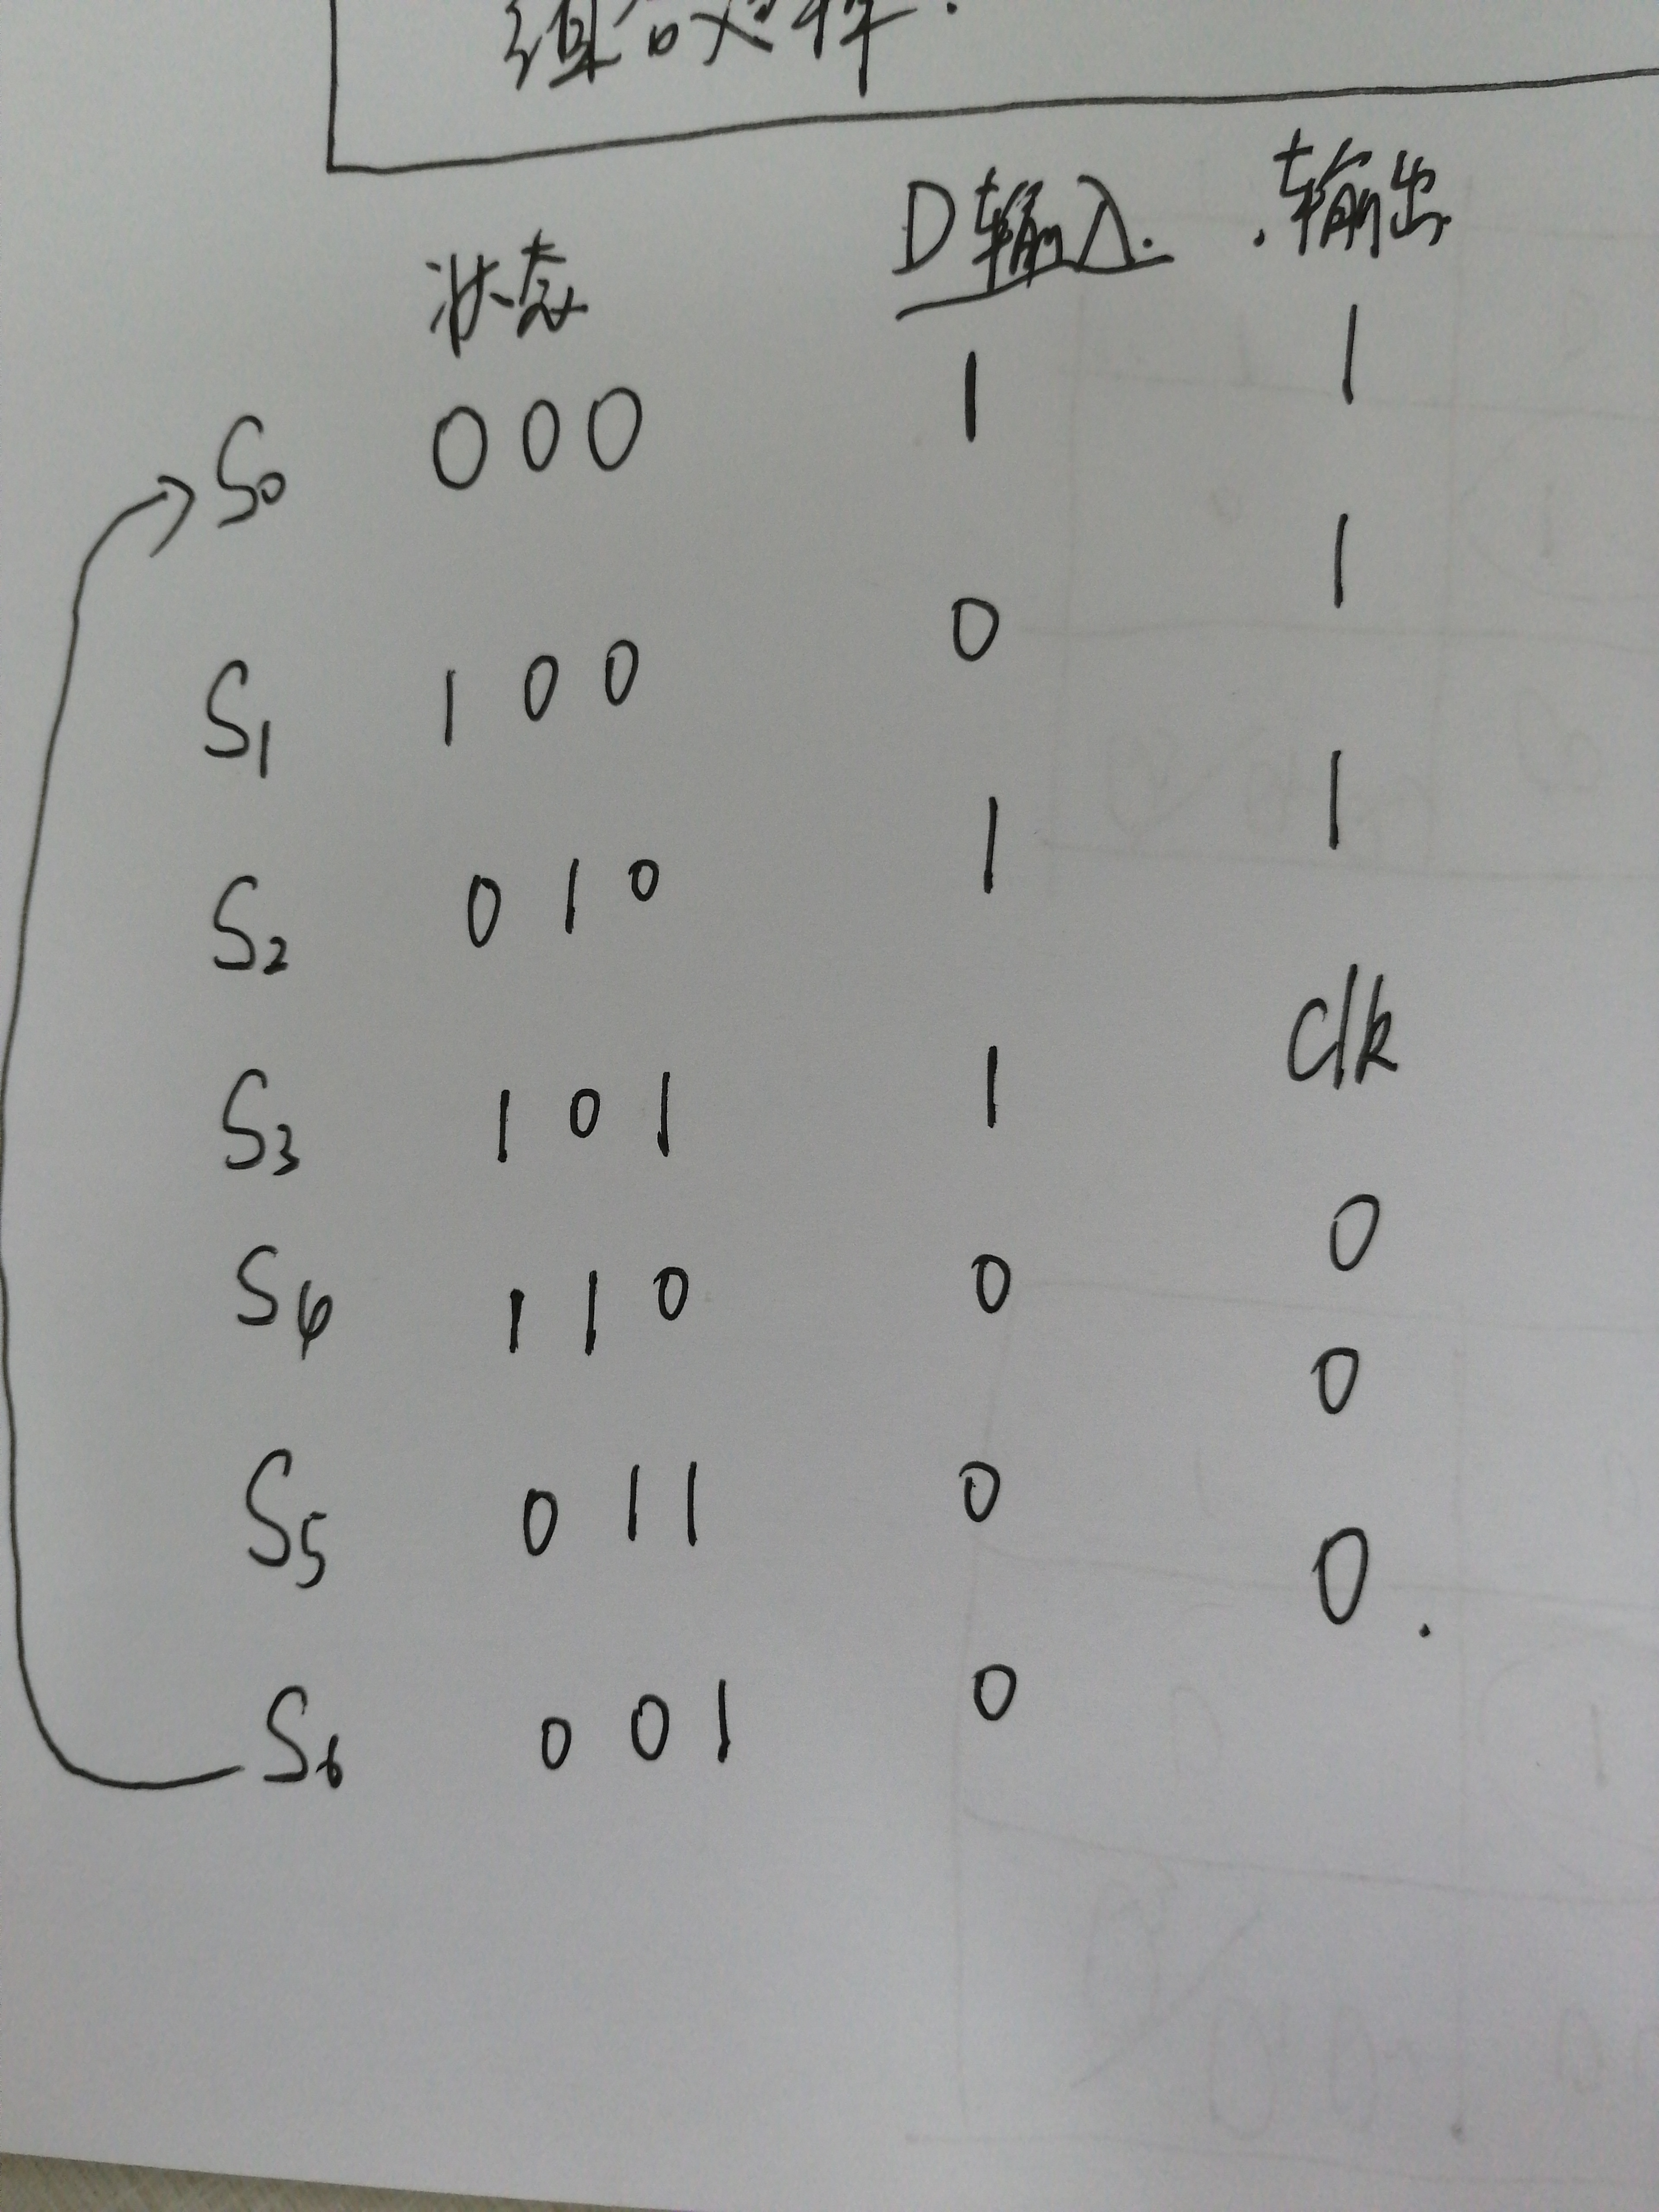 状态 D输入. 输出
S0 000 1 1
S1 100 0 1
S2 010 1 1
S3 101 1 clk
S4 110 0 0
S5 011 0 0
S6 001 0 0.